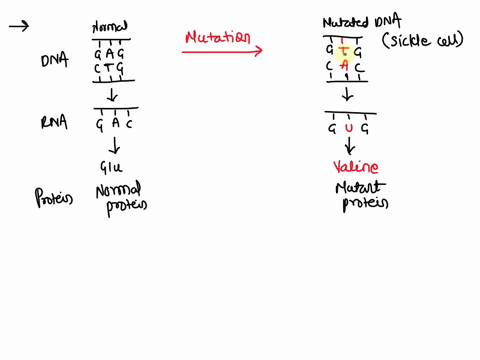 → Normal
Mutation
Mutated DNA
(Sickle cell)
DNA
G A G
C T G
G T G
C A C
RNA
G A C
G U G
Glu
Valine
Protein
Normal
protein
Mutant
protein